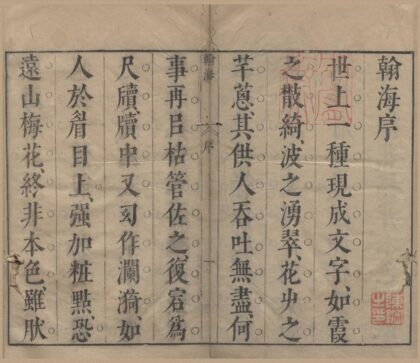 翰海序
世上一種現成文字、如霞
之散綺、波之湧翠、花山之
芊蔥、其供人吞吐無盡、何
翰海
序
一
事再㠯枯管佐之、復宕為
尺牘、牘中又幻作瀾漪、如
人於眉目上、强加粧點、恐
遠山梅花、終非本色、雖肰